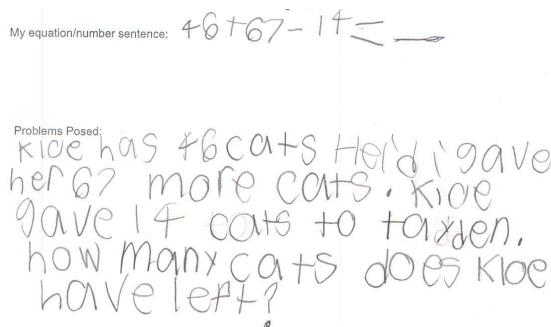 My equation/number sentence: 46+67-14=__
Problems Posed:
kloe has 46 cats Heidi gave
her 67 more cats. Kloe
gave 14 cats to tayden.
how many cats does Kloe
have left?